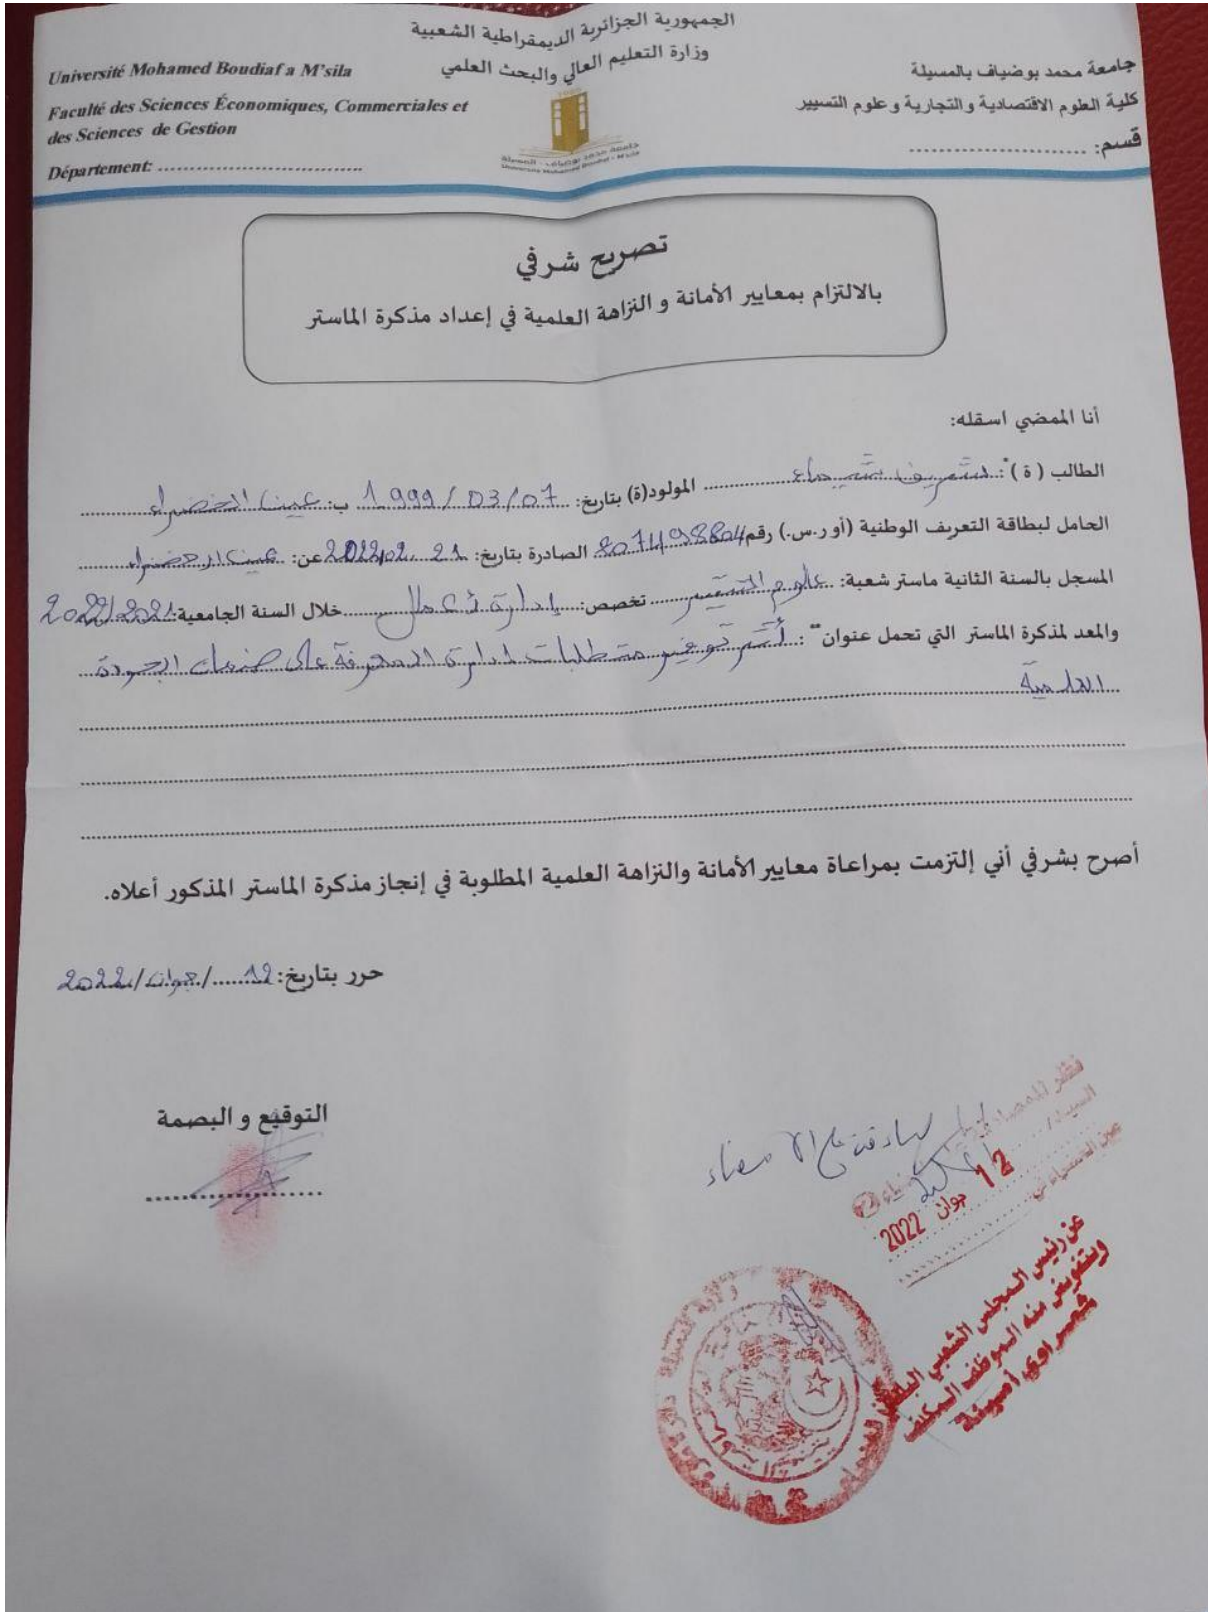 الجمهورية الجزائرية الديمقراطية الشعبية
وزارة التعليم العالي والبحث العلمي
جامعة محمد بوضياف بالمسيلة
كلية العلوم الاقتصادية والتجارية وعلوم التسيير
قسم: ............................
Université Mohamed Boudiaf a M'sila
Faculté des Sciences Économiques, Commerciales et
des Sciences de Gestion
Département: ................................
جامعة محمد بوضياف - المسيلة
Université Mohamed Boudiaf - M'sila
تصريح شرفي
بالالتزام بمعايير الأمانة و النزاهة العلمية في إعداد مذكرة الماستر
أنا الممضي اسقله:
الطالب (ة)*: شريف شيماء المولود(ة) بتاريخ: 1999/03/07 ب: عين الخضراء
الحامل لبطاقة التعريف الوطنية (أو ر.س.) رقم الصادرة بتاريخ: 21 02 2022 عن: عين الخضراء
المسجل بالسنة الثانية ماستر شعبة: علوم التسيير تخصص: إدارة أعمال خلال السنة الجامعية: 2022/2021
والمعد لمذكرة الماستر التي تحمل عنوان**: أثر توفير متطلبات إدارة المعرفة على الجودة
أصرح بشرفي أني إلتزمت بمراعاة معايير الأمانة والنزاهة العلمية المطلوبة في إنجاز مذكرة الماستر المذكور أعلاه.
حرر بتاريخ: 12/جوان/2022
التوقيع و البصمة
12 جوان 2022
عن رئيس المجلس الشعبي البلدي
وبتفويض منه الموظف المكلف